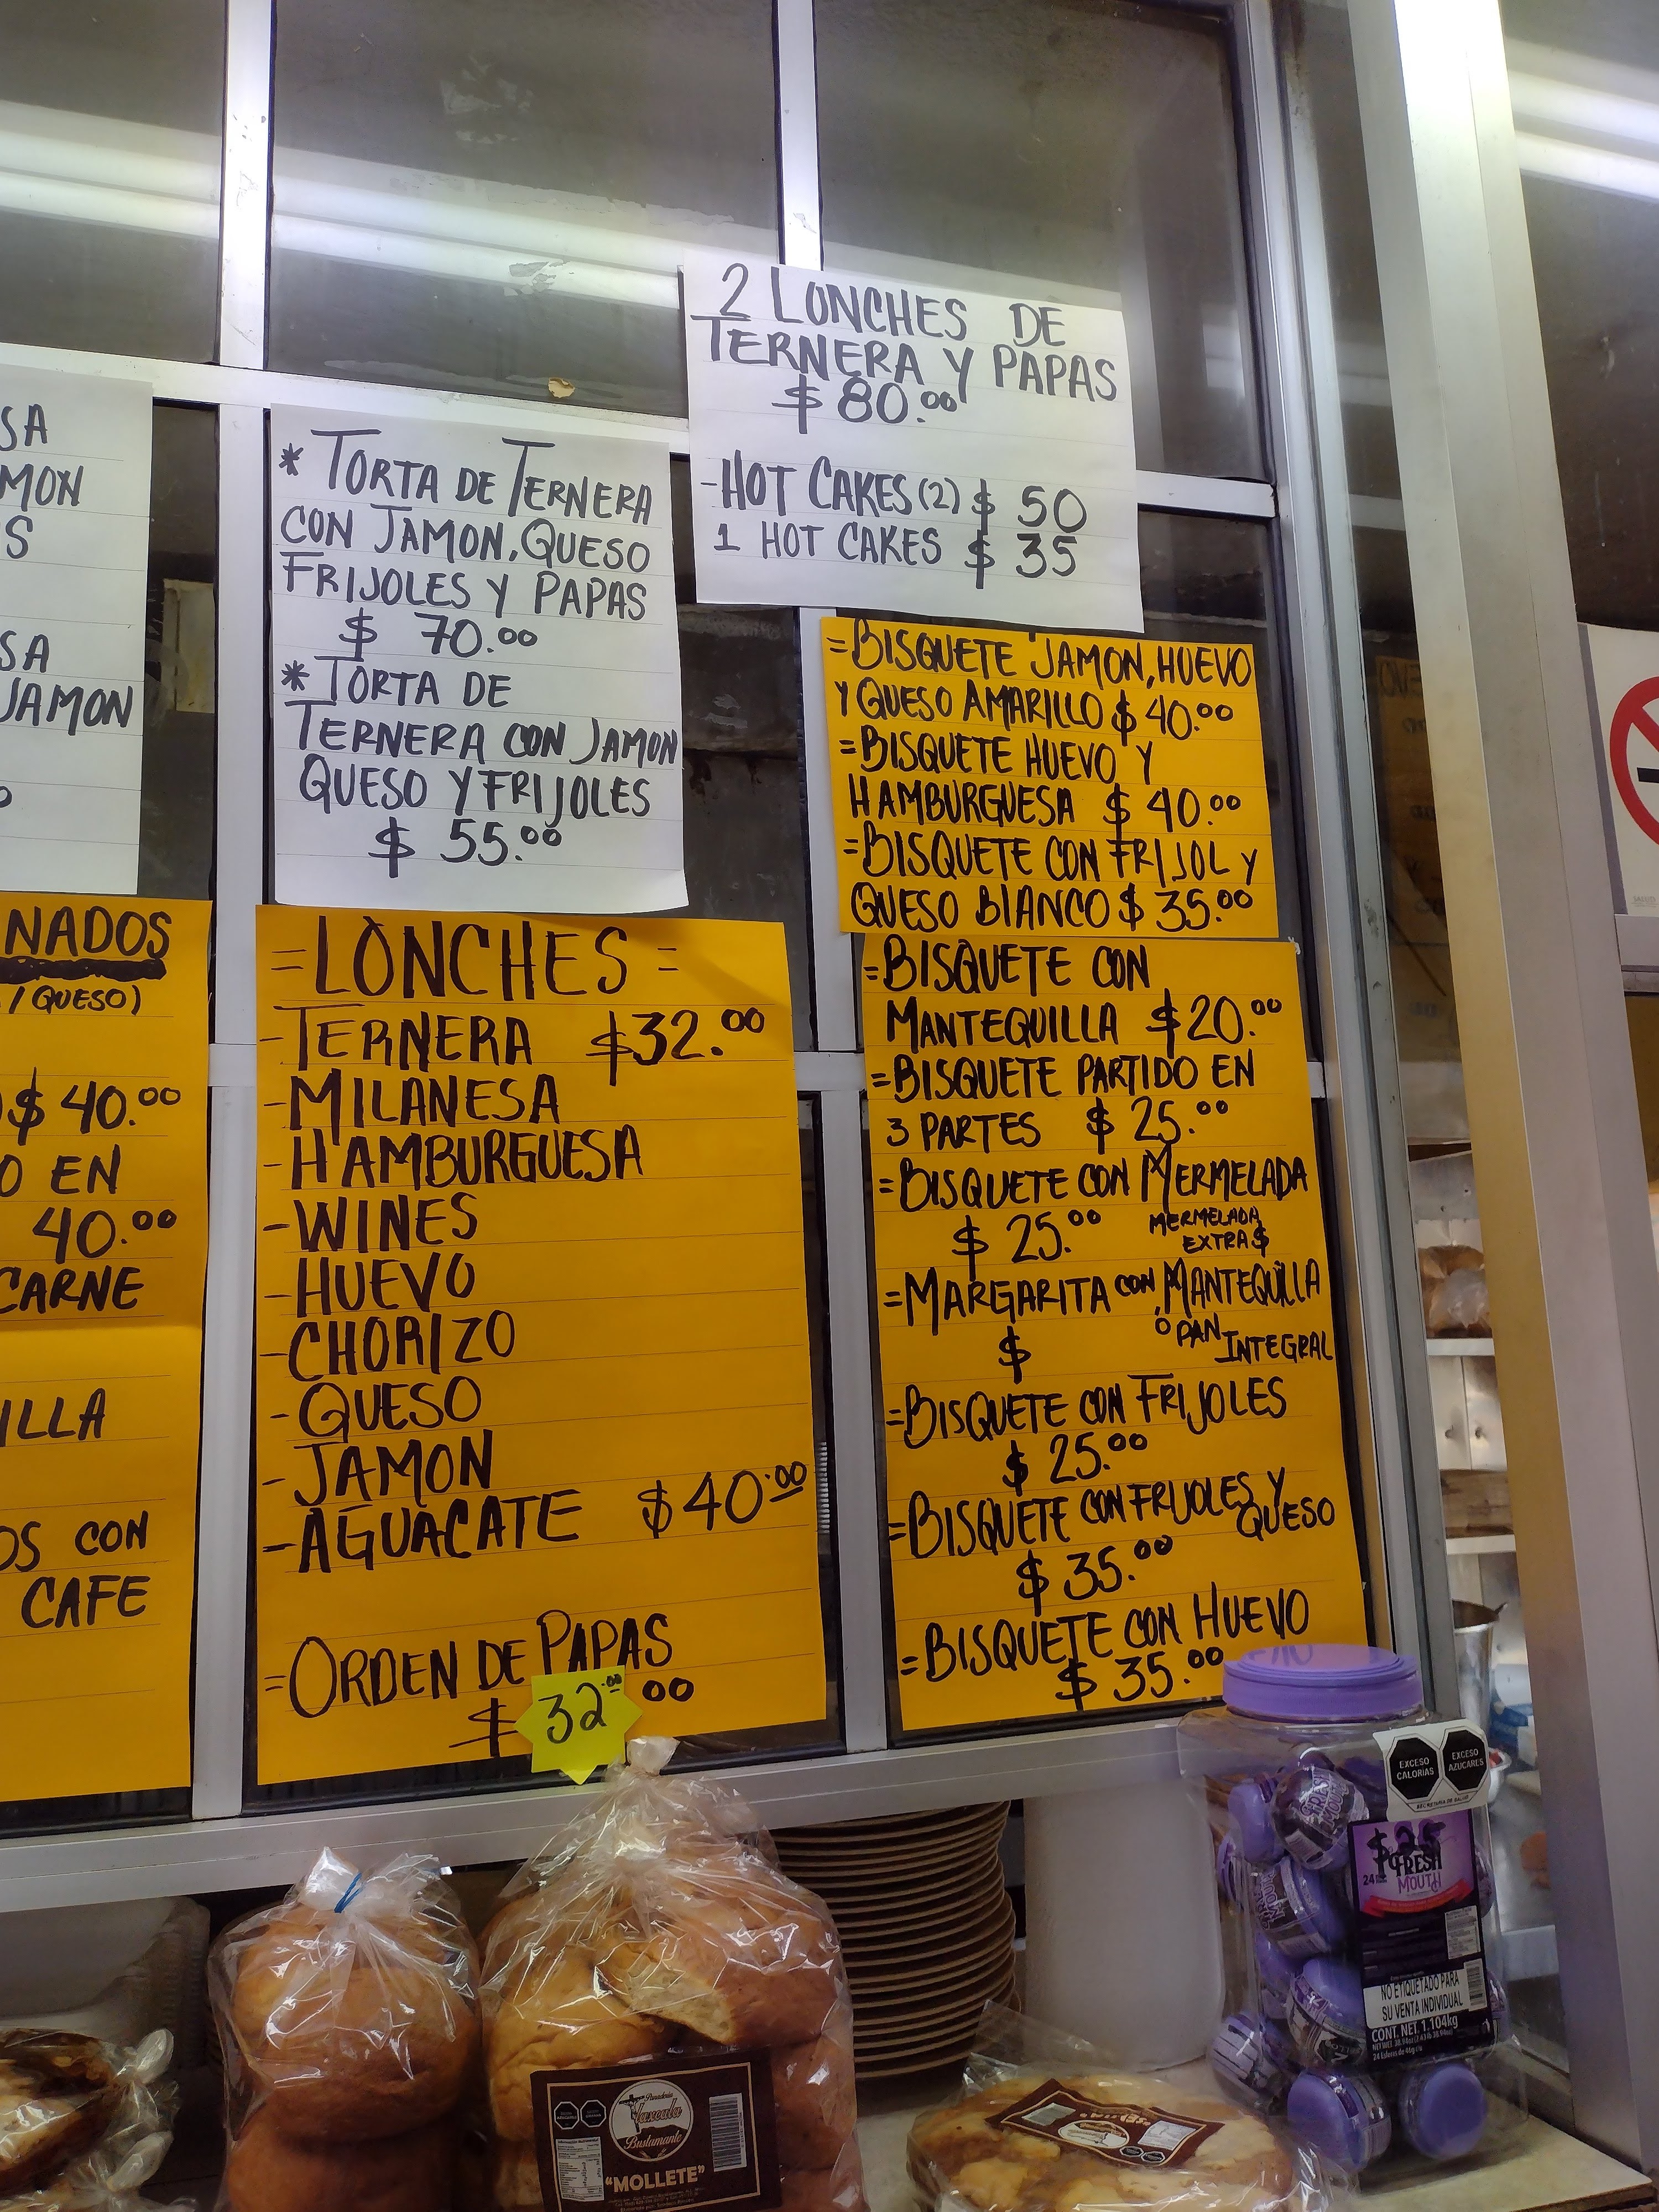 SA
MON
S
SA
JAMON
* TORTA DE TERNERA
CON JAMON, QUESO
FRIJOLES Y PAPAS
$ 70.00
* TORTA DE
TERNERA CON JAMON
QUESO Y FRIJOLES
$ 55.00
2 LONCHES DE
TERNERA Y PAPAS
$ 80.00
-HOT CAKES (2) $ 50
1 HOT CAKES $ 35
=BISQUETE JAMON, HUEVO
Y QUESO AMARILLO $ 40.00
=BISQUETE HUEVO Y
HAMBURGUESA $ 40.00
=BISQUETE CON FRIJOL Y
QUESO BLANCO $ 35.00
NADOS
/ QUESO)
$ 40.00
O EN
40.00
CARNE
ILLA
OS CON
CAFE
=LONCHES=
-TERNERA $32.00
-MILANESA
-HAMBURGUESA
-WINES
-HUEVO
-CHORIZO
-QUESO
-JAMON
-AGUACATE $40.00
=ORDEN DE PAPAS
$ 32.00 00
=BISQUETE CON
MANTEQUILLA $20.00
=BISQUETE PARTIDO EN
3 PARTES $ 25.00
=BISQUETE CON MERMELADA
$ 25.00 MERMELADA
EXTRA $
=MARGARITA CON MANTEQUILLA
$ O PAN INTEGRAL
=BISQUETE CON FRIJOLES
$ 25.00
=BISQUETE CON FRIJOLES Y QUESO
$ 35.00
=BISQUETE CON HUEVO
$ 35.00
EXCESO CALORÍAS
EXCESO AZÚCARES
SECRETARÍA DE SALUD
FRESH
MOUTH
NO ETIQUETADO PARA
SU VENTA INDIVIDUAL
CONT. NET. 1.104kg
Panadería
Tlaxcala
Bustamante
"MOLLETE"